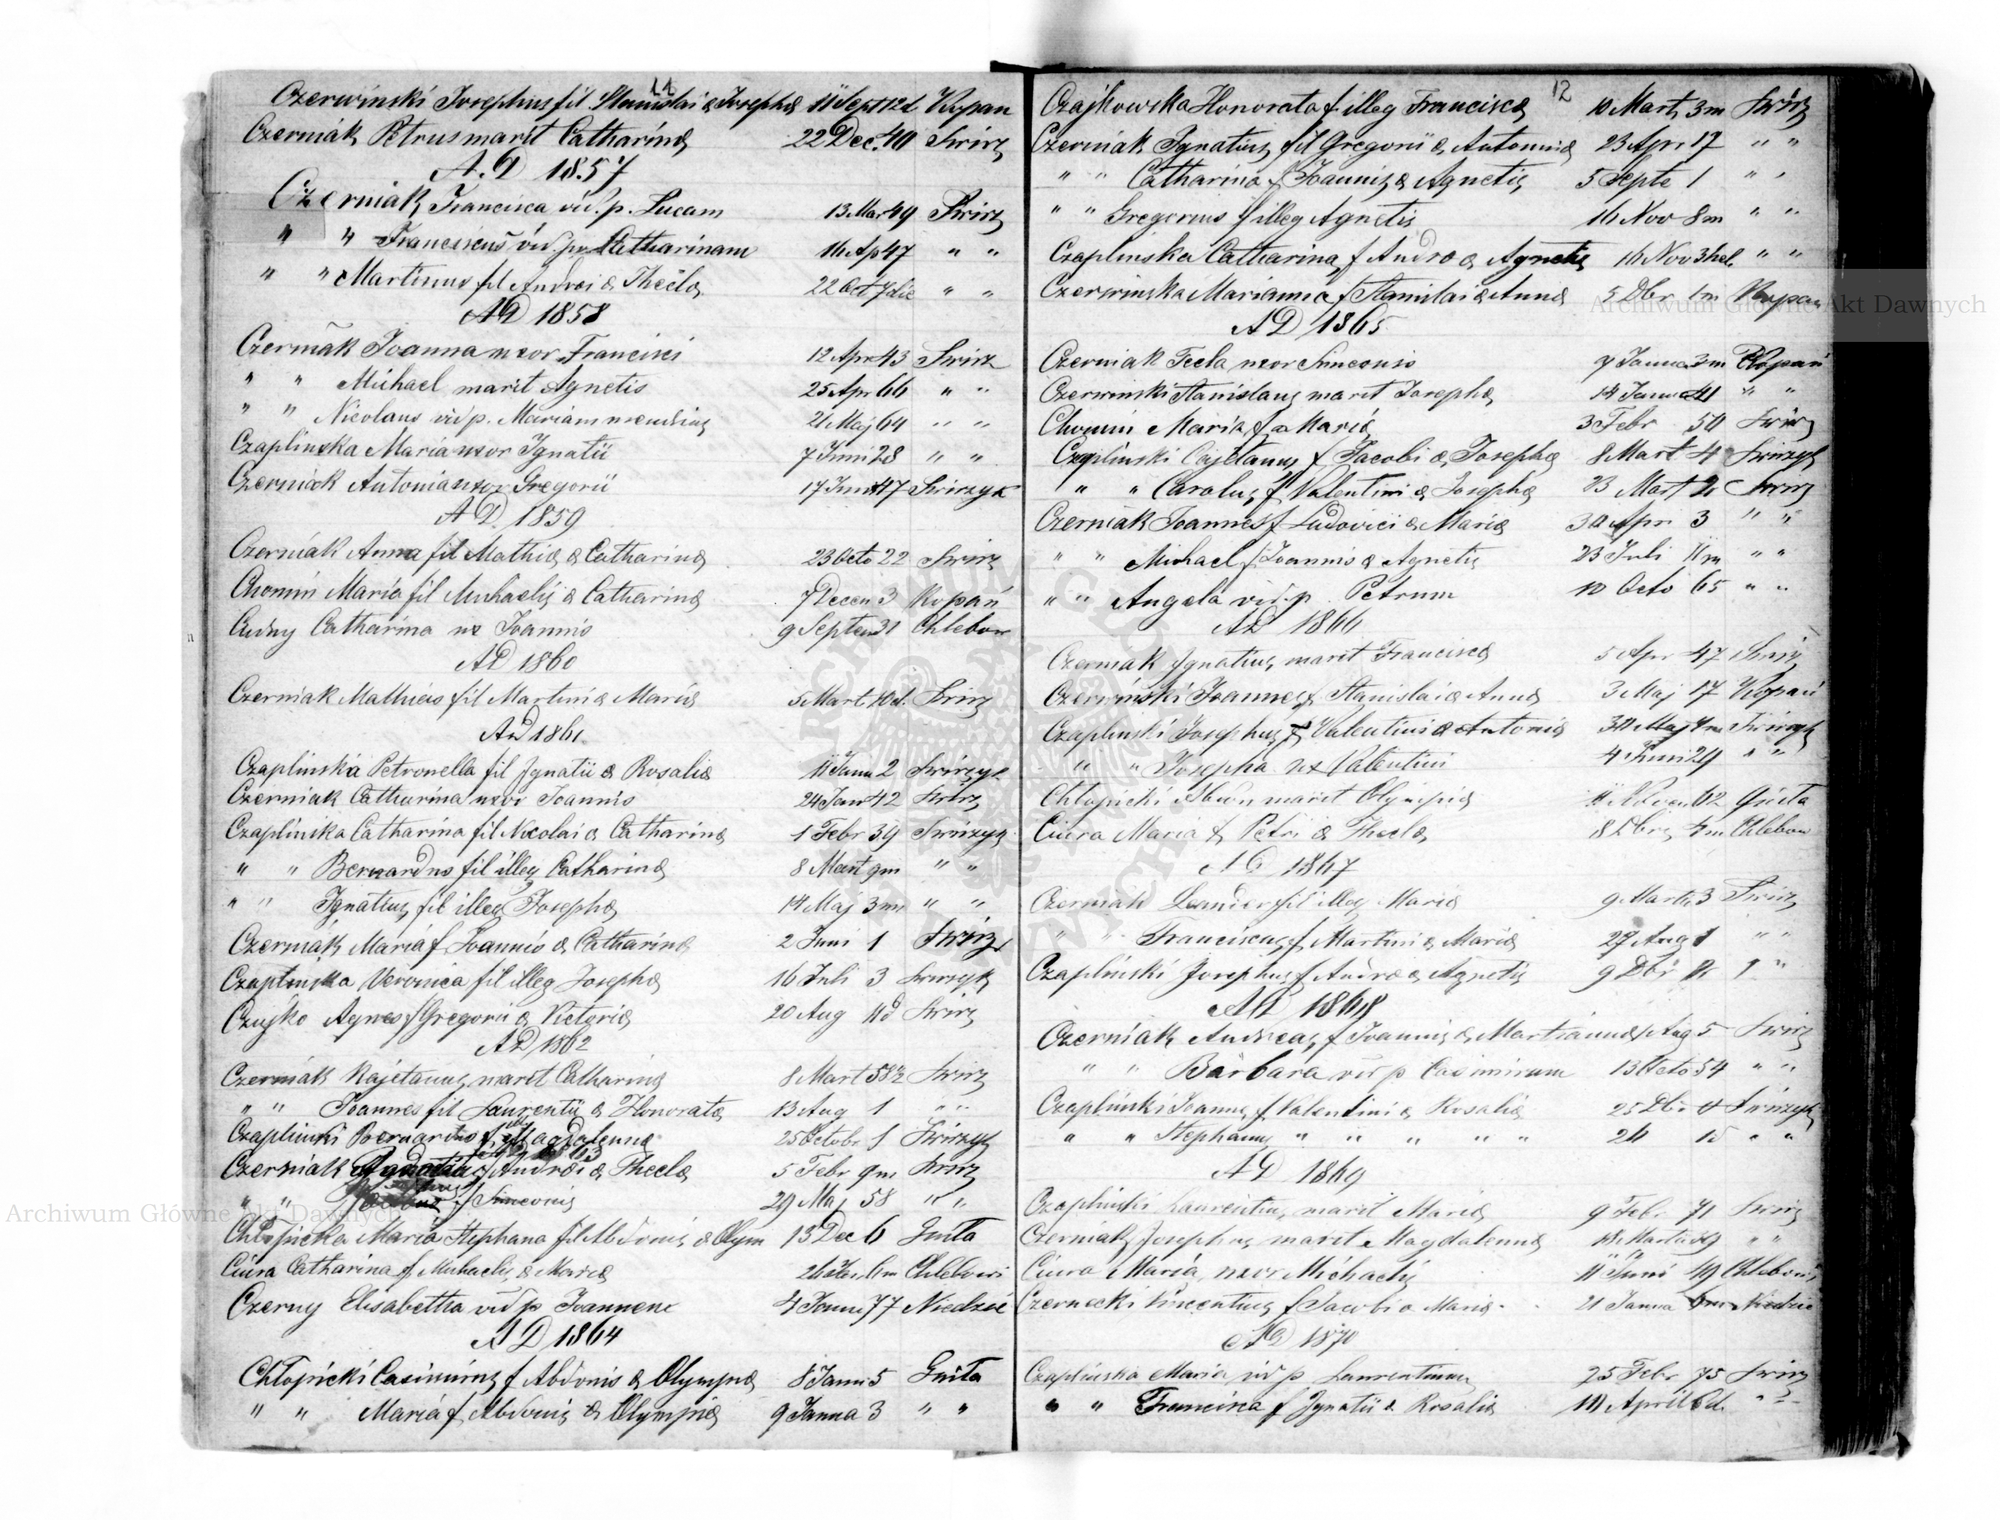 11
Czerwinski Josephus fil Stanislai & Josephæ 11 Sept 12d Kopan
Czerniak Petrus marit Catharinæ 22 Dec. 40 Swirz
A.D 1857
Czerniak Francisca vid. p. Lucam 13 Mar 49 Swirz
" " Franciscus vid. p. Catharinam 16 Ap 47 " "
" " Martinus fil Andrei & Theclæ 22 Oct 7 die " "
AD 1858
Czerniak Joanna uxor Francisci 12 Apr 45 Swirz
" " Michael marit Agnetis 25 Apr 66 " "
" " Nicolaus vid p. Mariam mendicus 21 Maj 64 " "
Czaplinska Maria uxor Ignatii 7 Juni 28 " "
Czerniak Antonia uxor Gregorii 17 Juni 47 Swirzyk
AD 1859
Czerniak Anna fil Mathiæ & Catharinæ 23 Octo 22 Swirz
Chomin Maria fil Michaelis & Catharinæ 7 Decem 3 Kopań
Cudny Catharina ux Joannis 9 Septem 31 Chlebow
AD 1860
Czerniak Mathias fil Martini & Mariæ 5 Mart 10 d. Swirz
AD 1861.
Czaplinska Petronella fil Ignatii & Rosaliæ 11 Janu 2 Swirzyk
Czerniak Catharina uxor Joannis 24 Janu 42 Swirz
Czaplinska Catharina fil Nicolai & Catharinæ 1 Febr 39 Swirzyk
" " Bernardus fil illeg Catharinæ 8 Mart 9m " "
" " Ignatius fil illeg Josephæ 14 Maj 3m " "
Czerniak Maria f Joannis & Catharinæ 2 Juni 1 Swirz
Czaplinska Veronica fil illeg Josephæ 16 Juli 3 Swirzyk
Czujko Agnes f Gregorii & Victoriæ 20 Aug 11d Swirz
AD 1862
Czerniak Kajetanus marit Catharinæ 8 Mart 58½ Swirz
" " Joannes fil Laurentii & Honoratæ 13 Aug 1 " "
Czaplinski Bernardus f Magdalenæ 25 Octobr 1 Swirzyk
1863
Czerniak f Andrei & Theclæ 5 Febr 9m Swirz
" " f Simeonis 29 Maj 58 " "
Chłopicka Maria Stephana fil Abdonis & Olym 13 Dec 6 Gnita
Ciura Catharina f Michaelis & Mariæ Chlebowi
Czerny Elisabetha vid p Joannem 4 Janu 77 Niedzie
AD 1864
Chłopicki Casimirus f Abdonis & Olympiæ 8 Janu 5 Gnita
" " Maria f Abdonis & Olympiæ 9 Janua 3 " "
12
Czajkowska Honorata f illeg Franciscæ 10 Mart 3m Swirz
Czerniak Ignatius fil Gregorii & Antoniæ 23 Apr 17 " "
" " Catharina f Joannis & Agnetis 5 Septe 1 " "
" " Gregorius f illeg Agnetis 16 Nov 8m " "
Czaplinska Catharina f Andreæ & Agnetis 16 Nov 3 " "
Czerwinska Marianna f Stanislai & Annæ 5 Dbr 1m Kopan
AD 1865
Czerniak Tecla uxor 7 Janua 3m Kopań
Czerwinski Stanislaus marit Josephæ 14 Janua 41 " "
Chomin Maria f a Mariæ 3 Febr 50 Swirz
Czaplinski Cajetanus f Jacobi & Josephæ 8 Mart 4 Swirzyk
" " Carolus f Valentini & Josephæ 23 Mart 2 Swirz
Czerniak Joannes f Ludovici & Mariæ 30 Apr 3 " "
" " Michael f Joannis & Agnetis 23 Juli 11m " "
" " Angela vid. p. Petrum 10 Octo 65 " "
AD 1866
Czerniak Ignatius marit Franciscæ 5 Apr 47 Swirz
Czerwiński Joannes f Stanislai & Annæ 3 Maj 17 Kopań
Czaplinski Josephus f Valentini & Antoniæ 30 Maj 4m Swirzyk
" " Josepha ux Valentini 4 Juni 29 " "
Chłopicki Abdon marit Olympiæ 11 Novem 62 Gnita
Ciura Maria f Petri & Theclæ 18 Dbris 4m Chlebow
AD 1867
Czerniak Leander fil illeg Mariæ 9 Martii 3 Swirz
" " Franciscus f Martini & Mariæ 27 Aug 1 " "
Czaplinski Josephus f Andreæ & Agnetis 9 Dbr " "
AD 1868
Czerniak Andreas f Joannis & Mariannæ Aug 5 Swirz
" " Barbara vid p Casimirum 13 Octo 54 " "
Czaplinski Joannes f Valentini & Rosaliæ 25 Dbr Swirzyk
" " Stephanus " " " " " 26 " "
AD 1869
Czaplinski Laurentius marit Mariæ 9 Febr 71 Swirz
Czerniak Josephus marit Magdalenæ Marta 49 " "
Ciura Maria uxor Michaelis 11 Juni 49 Chlebowi
Czernecki Vincentius f Jacobi & Mariæ 21 Janua 6m Niedzie
AD 1870
Czaplinska Maria vid p Laurentium 25 Febr 75 Swirz
" " Francisca f Ignatii & Rosaliæ 10 April 6d. " "
Archiwum Główne Akt Dawnych
Archiwum Główne Akt Dawnych
ARCHIWUM GŁÓWNE AKT DAWNYCH